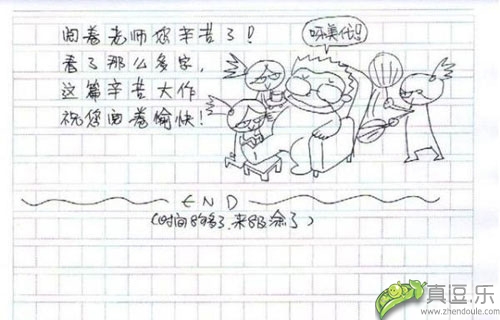 阅卷老师您辛苦了!
看了那么多字,
这篇辛苦大作
祝您阅卷愉快!
END
(时间8够了,来8及涂了)
真逗.乐
www.zhendoule.com